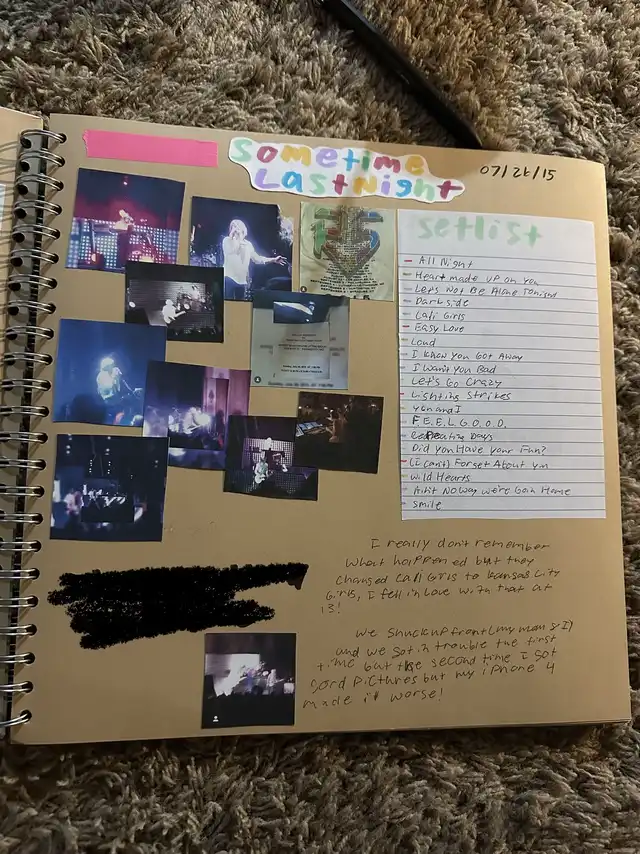 SOMETIME
LAST NIGHT
07/26/15
setlist
- All Night
- Heart made up on you
- Let's Not Be Alone Tonight
- Dark side
- Cali Girls
- Easy Love
- Loud
- I Know You Got Away
- I Want You Bad
- Let's Go Crazy
- Lighting Strikes
- You and I
- F.E.E.L.G.O.O.D.
- Repeating Days
- Did You Have Your Fun?
- (I can't) Forget About you
- Wild Hearts
- Ain't No Way we're Goin Home
- Smile
I really don't remember
what happened but they
changed Cali Girls to Kansas City
Girls, I fell in love with that at
13!
We snuck up front (my mom & I)
and we got in trouble the first
time but the second time I got
good pictures but my iPhone 4
made it worse!